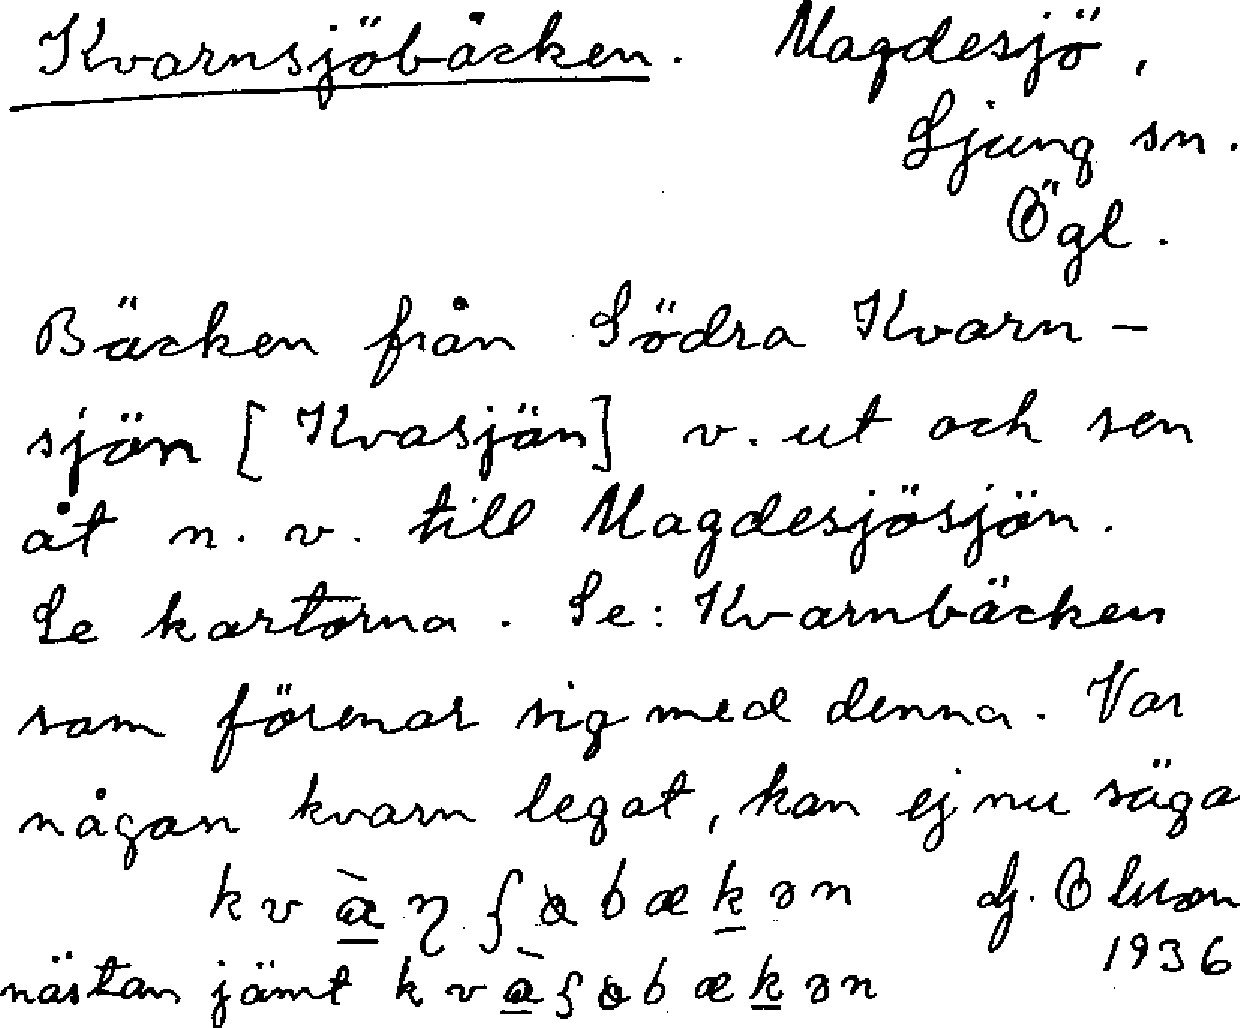 Kvarnsjöbäcken. Magdesjö,
Ljung sn.
Ögl.
Bäcken från Södra Kvarn-
sjön [Kvasjön] v. ut och sen
åt n. v. till Magdesjösjön.
Se kartorna. Se: Kvarnbäcken
som förenar sig med denna. Var
någon kvarn legat, kan ej nu säga
1936
nästan jämt